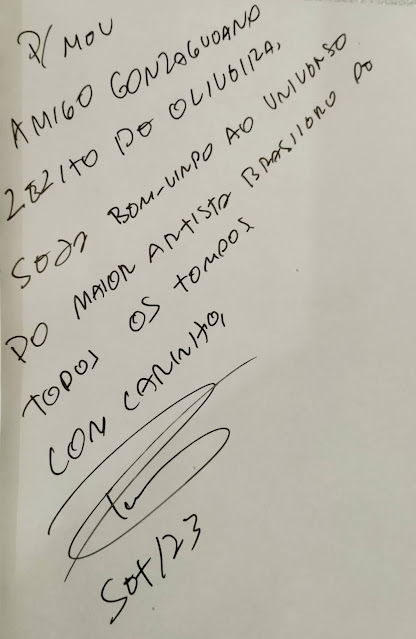 P/ MEU
AMIGO GONZAGUEANO
ZEZITO DE OLIVEIRA,
SEJA BEM-VINDO AO UNIVERSO
DO MAIOR ARTISTA BRASILEIRO DE
TODOS OS TEMPOS
COM CARINHO,
Set/23